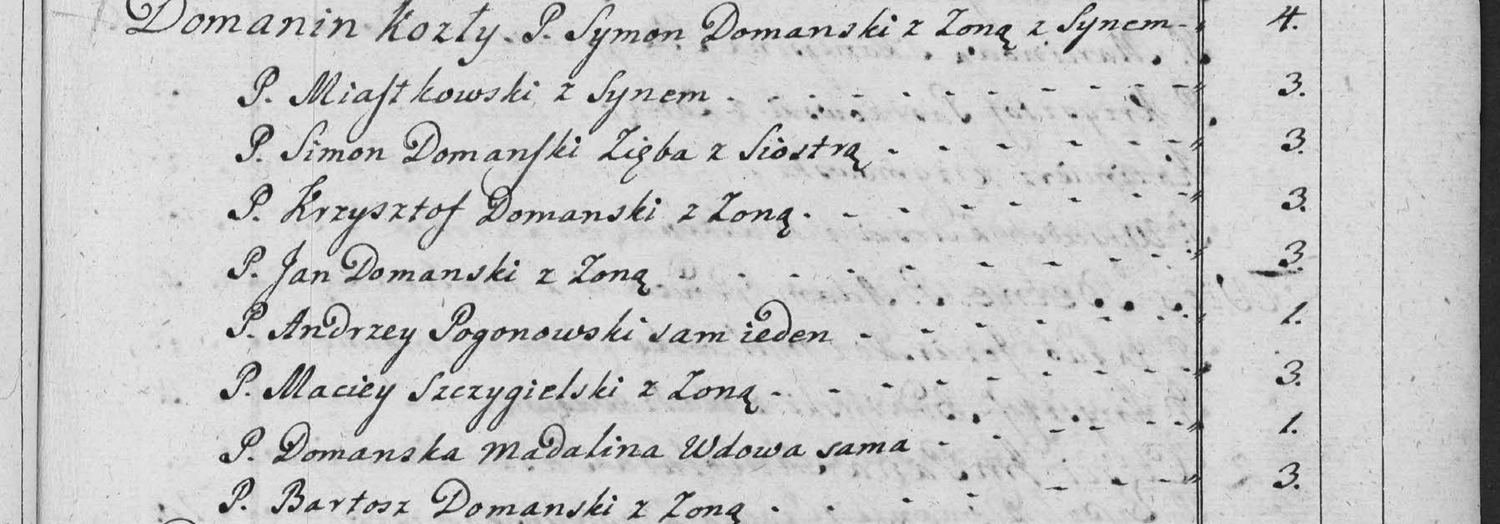 Domanin Kozły P. Symon Domanski z Zoną z Synem - 4.
P. Miastkowski z Synem - - - - - - - - 3.
P. Simon Domanski Zięba z Siostrą - - - - - - 3.
P. Krzysztof Domanski z Zoną - - - - - - - 3.
P. Jan Domanski z Zoną - - - - - - - 3.
P. Andrzey Pogonowski sam ieden - - - - - - 1.
P. Maciey Szczygielski z Zoną - - - - - - - 3.
P. Domanska Madalina Wdowa sama - - - - - 1.
P. Bartosz Domanski z Zoną - - - - - - - 3.